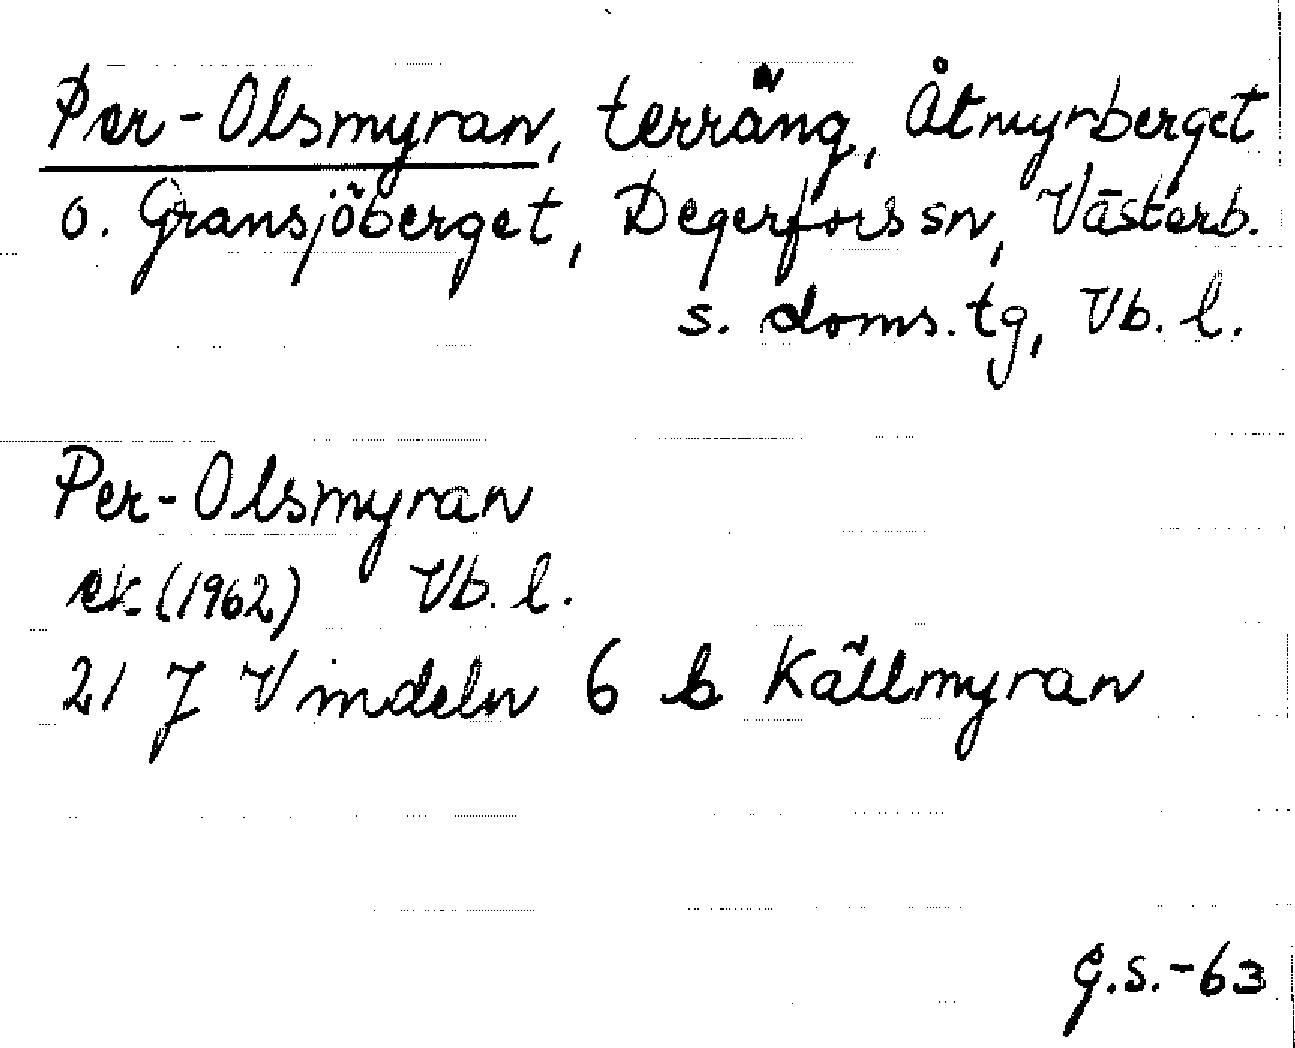 Per-Olsmyran, terräng, Åtmyrberget
o. Gransjöberget, Degerfors sn, Västerb.
s. doms. tg, Vb. l.
Per-Olsmyran
ek (1962) Vb. l.
21 J Vindeln 6 b Källmyran
G.S.-63